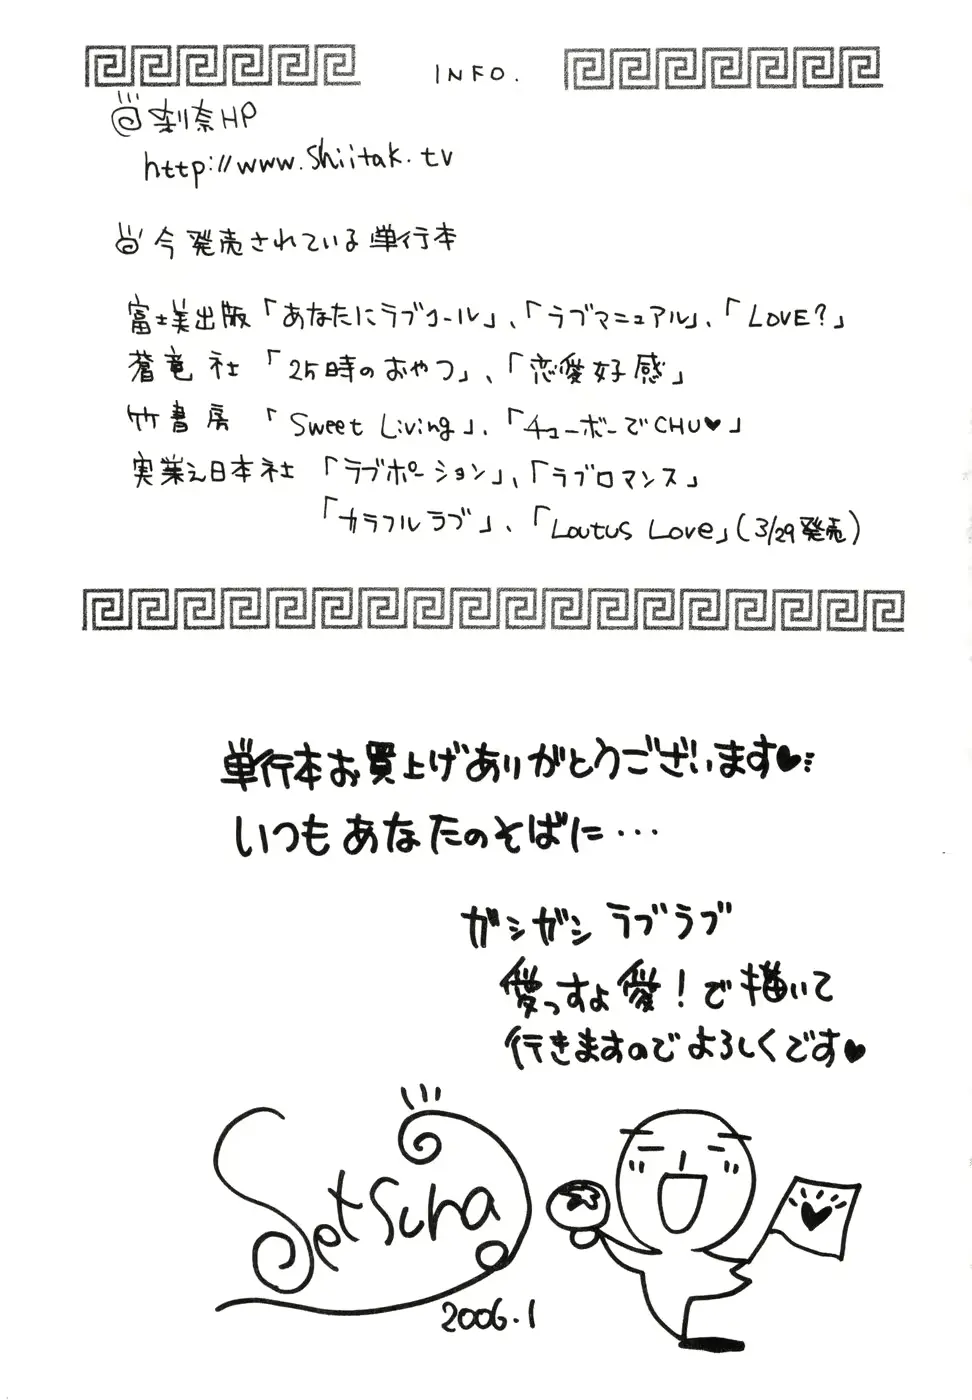 INFO.
刹奈HP
http://www.shiitak.tv
今発売されている単行本
富士美出版「あなたにラブコール」、「ラブマニュアル」、「LOVE?」
蒼竜社「25時のおやつ」、「恋愛好感」
竹書房「Sweet Living」、「チューボーでCHU♥」
実業之日本社「ラブポーション」、「ラブロマンス」
「カラフルラブ」、「Loutus Love」(3/29発売)
単行本お買上げありがとうございます♥
いつもあなたのそばに…
ガシガシラブラブ
愛っすよ愛!で描いて
行きますのでよろしくです♥
Setsuna
2006.1